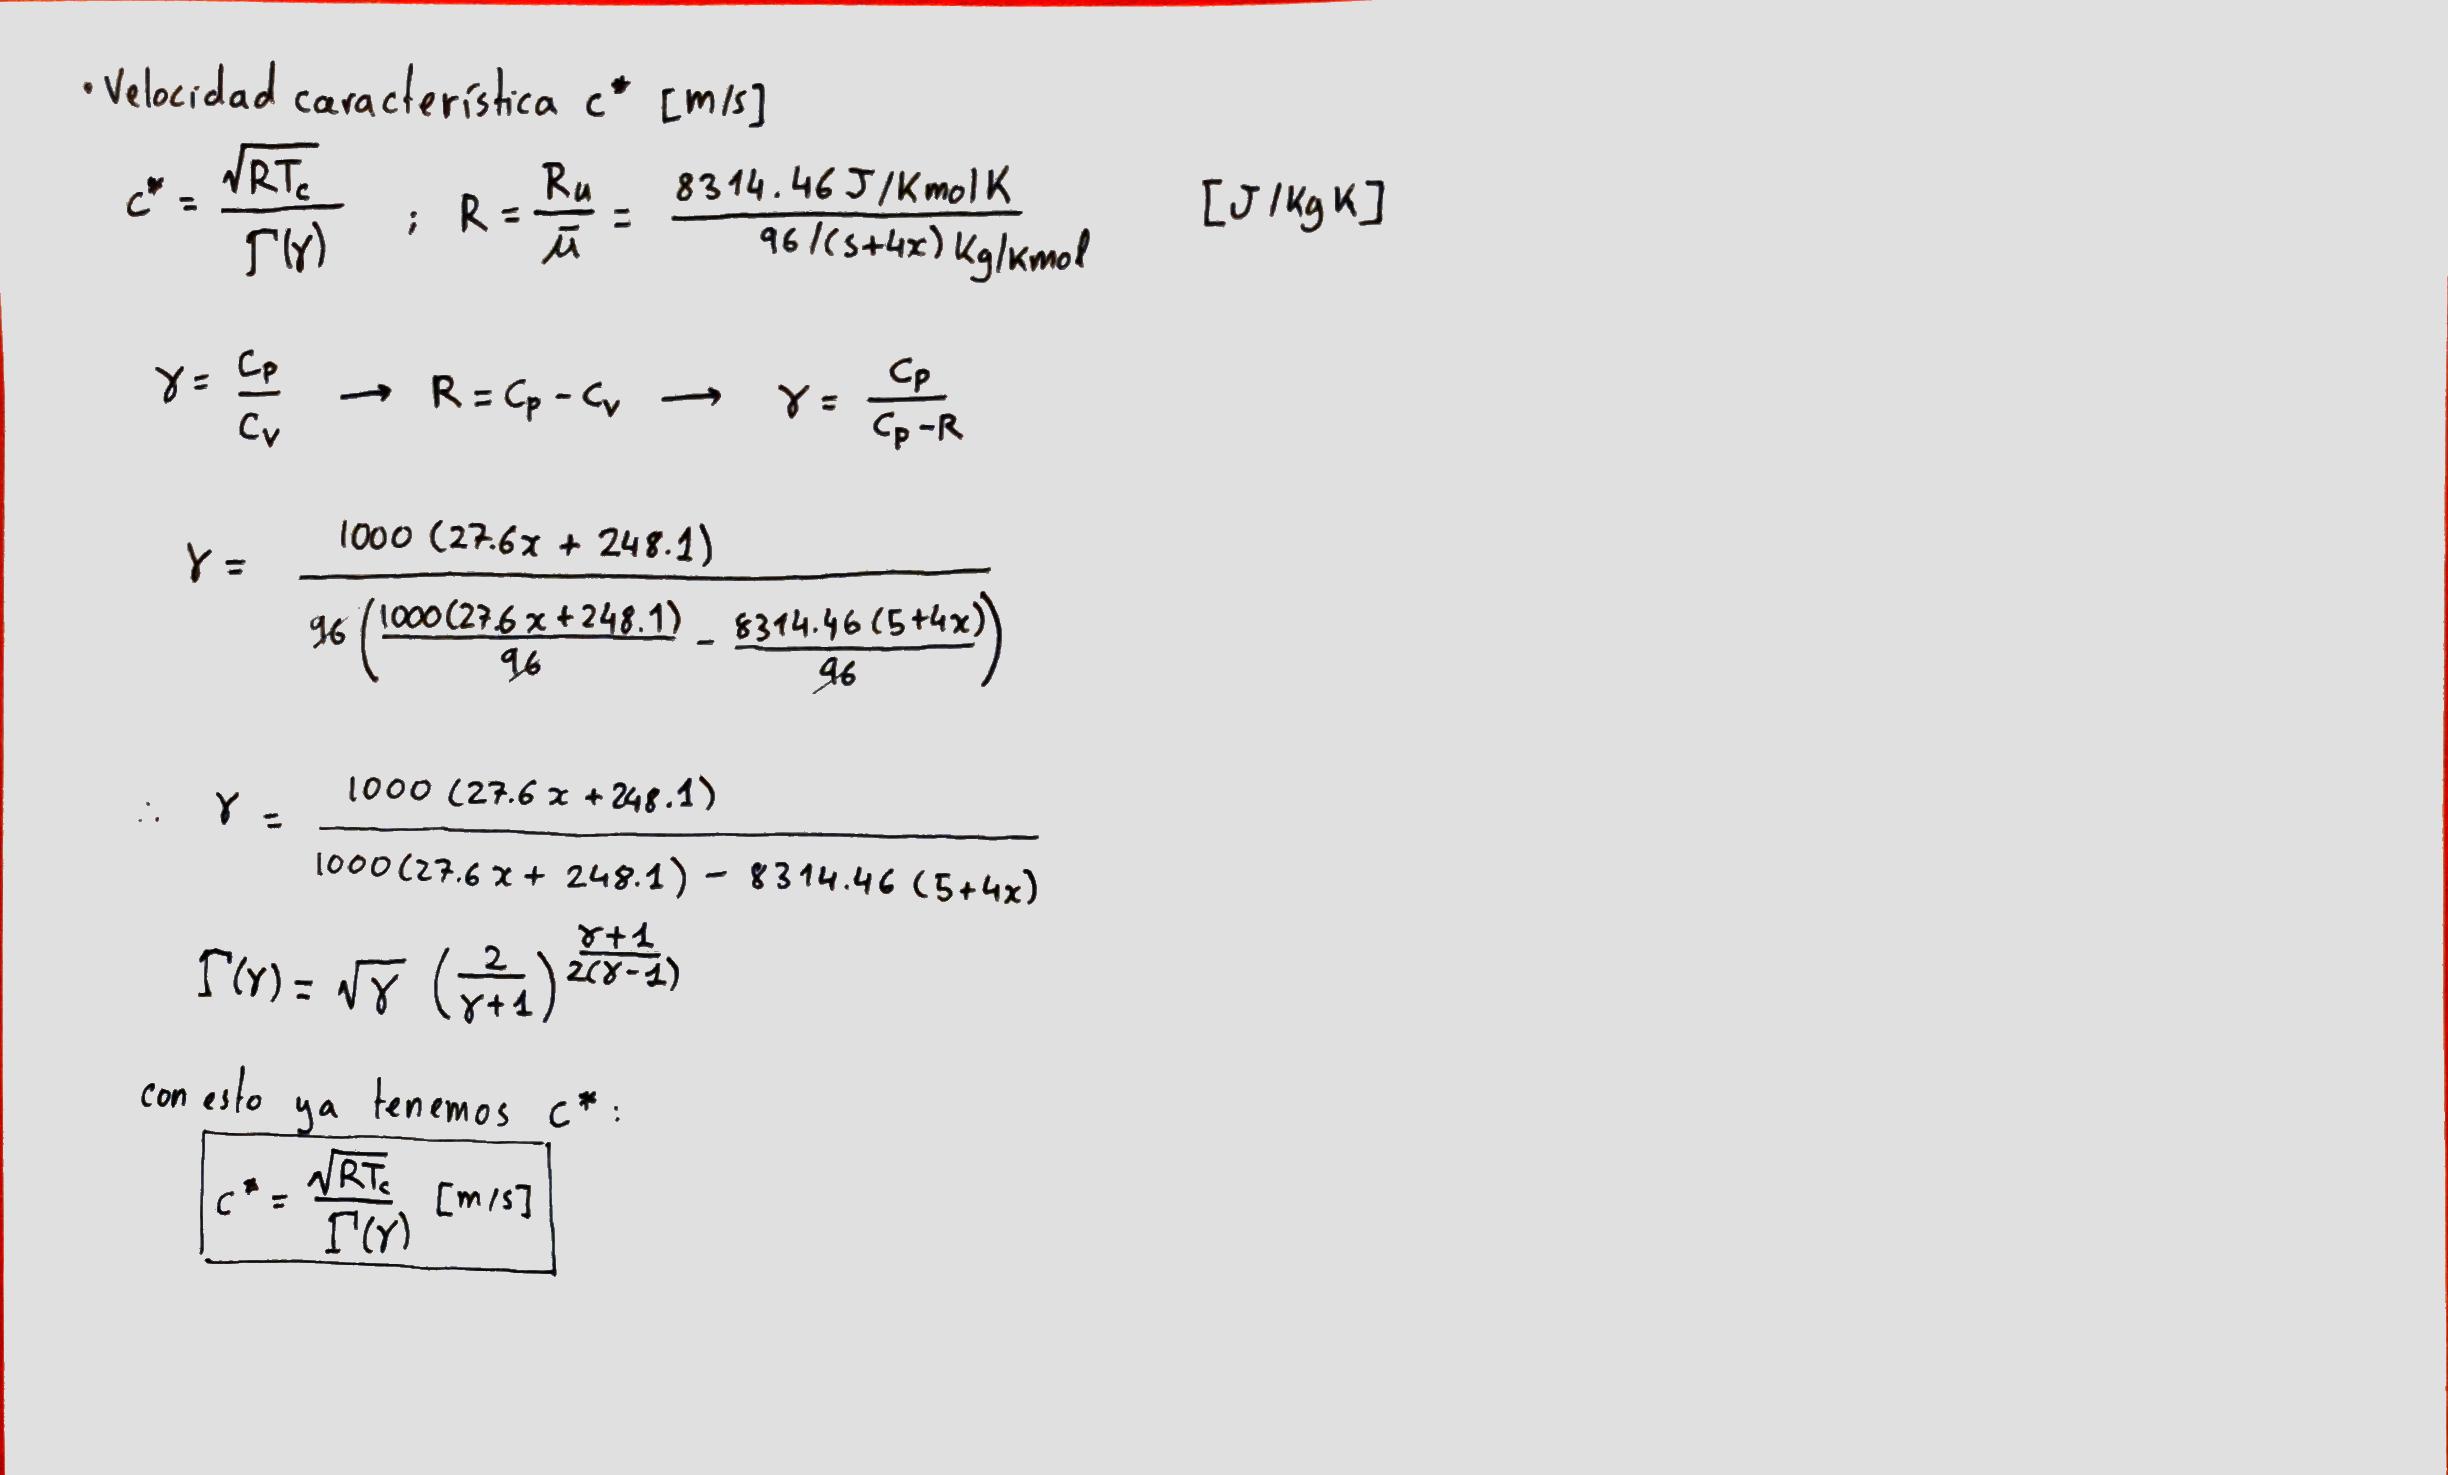 • Velocidad característica c* [m/s]
c* = √(RTc) / Γ(γ) ; R = Ru / μ̄ = 8314.46 J/KmolK / 96/(5+4x) Kg/Kmol [J/KgK]
γ = Cp / Cv → R = Cp - Cv → γ = Cp / (Cp - R)
γ = 1000 (27.6x + 248.1) / 96 (1000(27.6x + 248.1) / 96 - 8314.46 (5+4x) / 96)
∴ γ = 1000 (27.6x + 248.1) / 1000(27.6x + 248.1) - 8314.46 (5+4x)
Γ(γ) = √γ (2 / (γ+1))^((γ+1) / 2(γ-1))
con esto ya tenemos c* :
c* = √(RTc) / Γ(γ) [m/s]